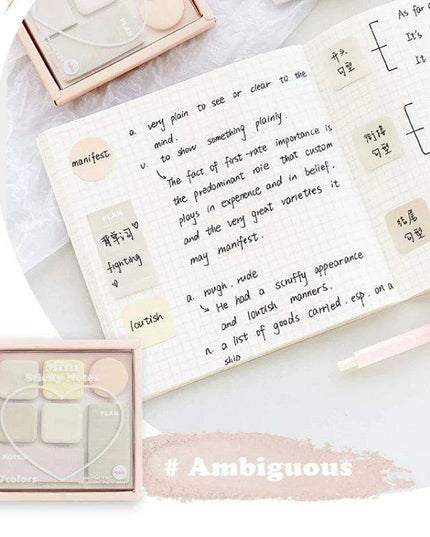 a. very plain to see or clear to the
mind.
v. to show something plainly.
manifest
↳ The fact of fast-rate importance is
the predominant role that custom
plays in experience and in belief.
and the very great varieties it
may manifest.
PLAN
背单词
fighting
loutish
a. rough. rude
↳ He had a scruffy appearance
and loutish manners.
n. a list of goods carried. esp. on a
ship
As far a
It's
It w
开头
句型
衔接
句型
结尾
句型
PLAN
Mini
Sticky Notes
PLAN
7colors
# Ambiguous